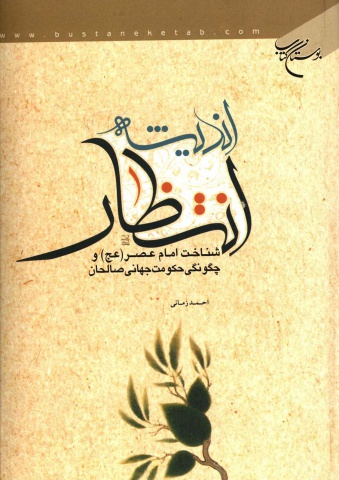 www.bustaneketab.com
بوستان کتاب
اندیشه
انتظار
شناخت امام عصر (عج) و
چگونگی حکومت جهانی صالحان
احمد زمانی